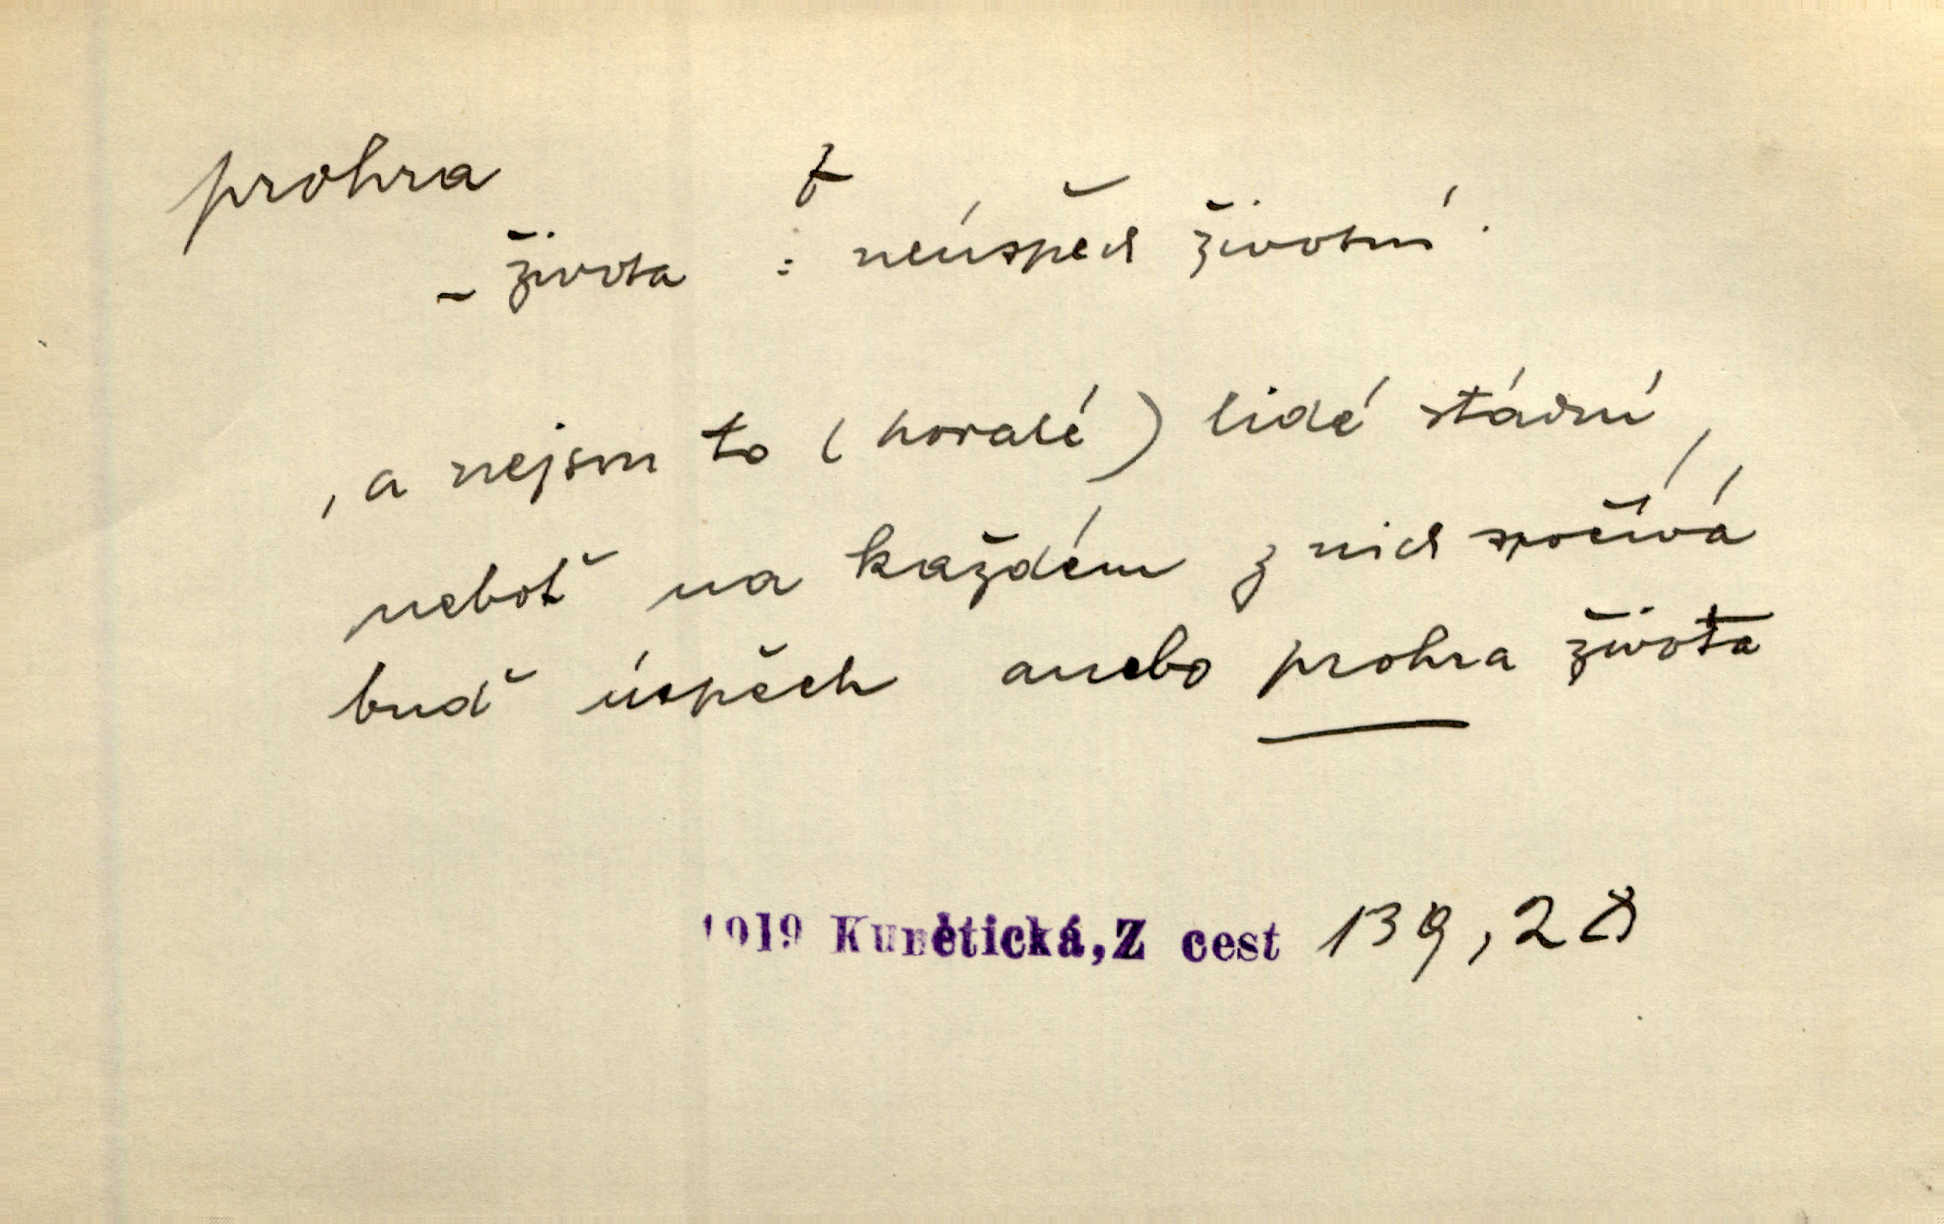 prohra f
– života : neúspěch životní.
, a nejsou to (horalé) lidé stádní,
neboť na každém z nich spočívá
buď úspěch anebo prohra života
1919 Kunětická, Z cest 139, 28